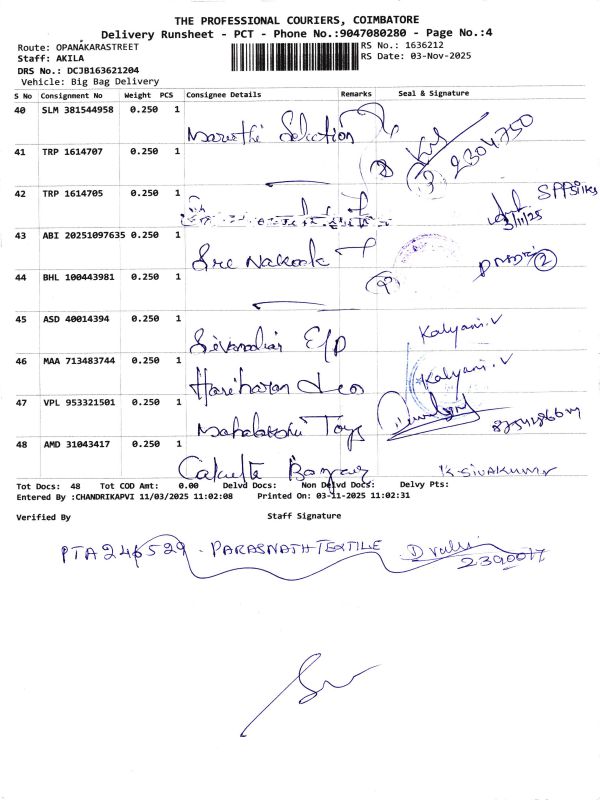 THE PROFESSIONAL COURIERS, COIMBATORE
Delivery Runsheet - PCT - Phone No.:9047080280 - Page No.:4
Route: OPANAKARASTREET
RS No.: 1636212
Staff: AKILA
RS Date: 03-Nov-2025
DRS No.: DCJB163621204
Vehicle: Big Bag Delivery
S No Consignment No Weight PCS Consignee Details Remarks Seal & Signature
40 SLM 381544958 0.250 1 Maruthi Selection
41 TRP 1614707 0.250 1 2304750
42 TRP 1614705 0.250 1 SPP Silks
3/11/25
43 ABI 20251097635 0.250 1 Sre
44 BHL 100443981 0.250 1
45 ASD 40014394 0.250 1 E/P Kalyani.V
46 MAA 713483744 0.250 1 Hariharan Kalyani.V
47 VPL 953321501 0.250 1 Mahalakshmi Toys
48 AMD 31043417 0.250 1 Calcutta Bazaar K-SIVAKUMAR
Tot Docs: 48 Tot COD Amt: 0.00 Delvd Docs: Non Delvd Docs: Delvy Pts:
Entered By :CHANDRIKAPVI 11/03/2025 11:02:08 Printed On: 03-11-2025 11:02:31
Verified By Staff Signature
PTA 246529 - PARASNATH TEXTILE